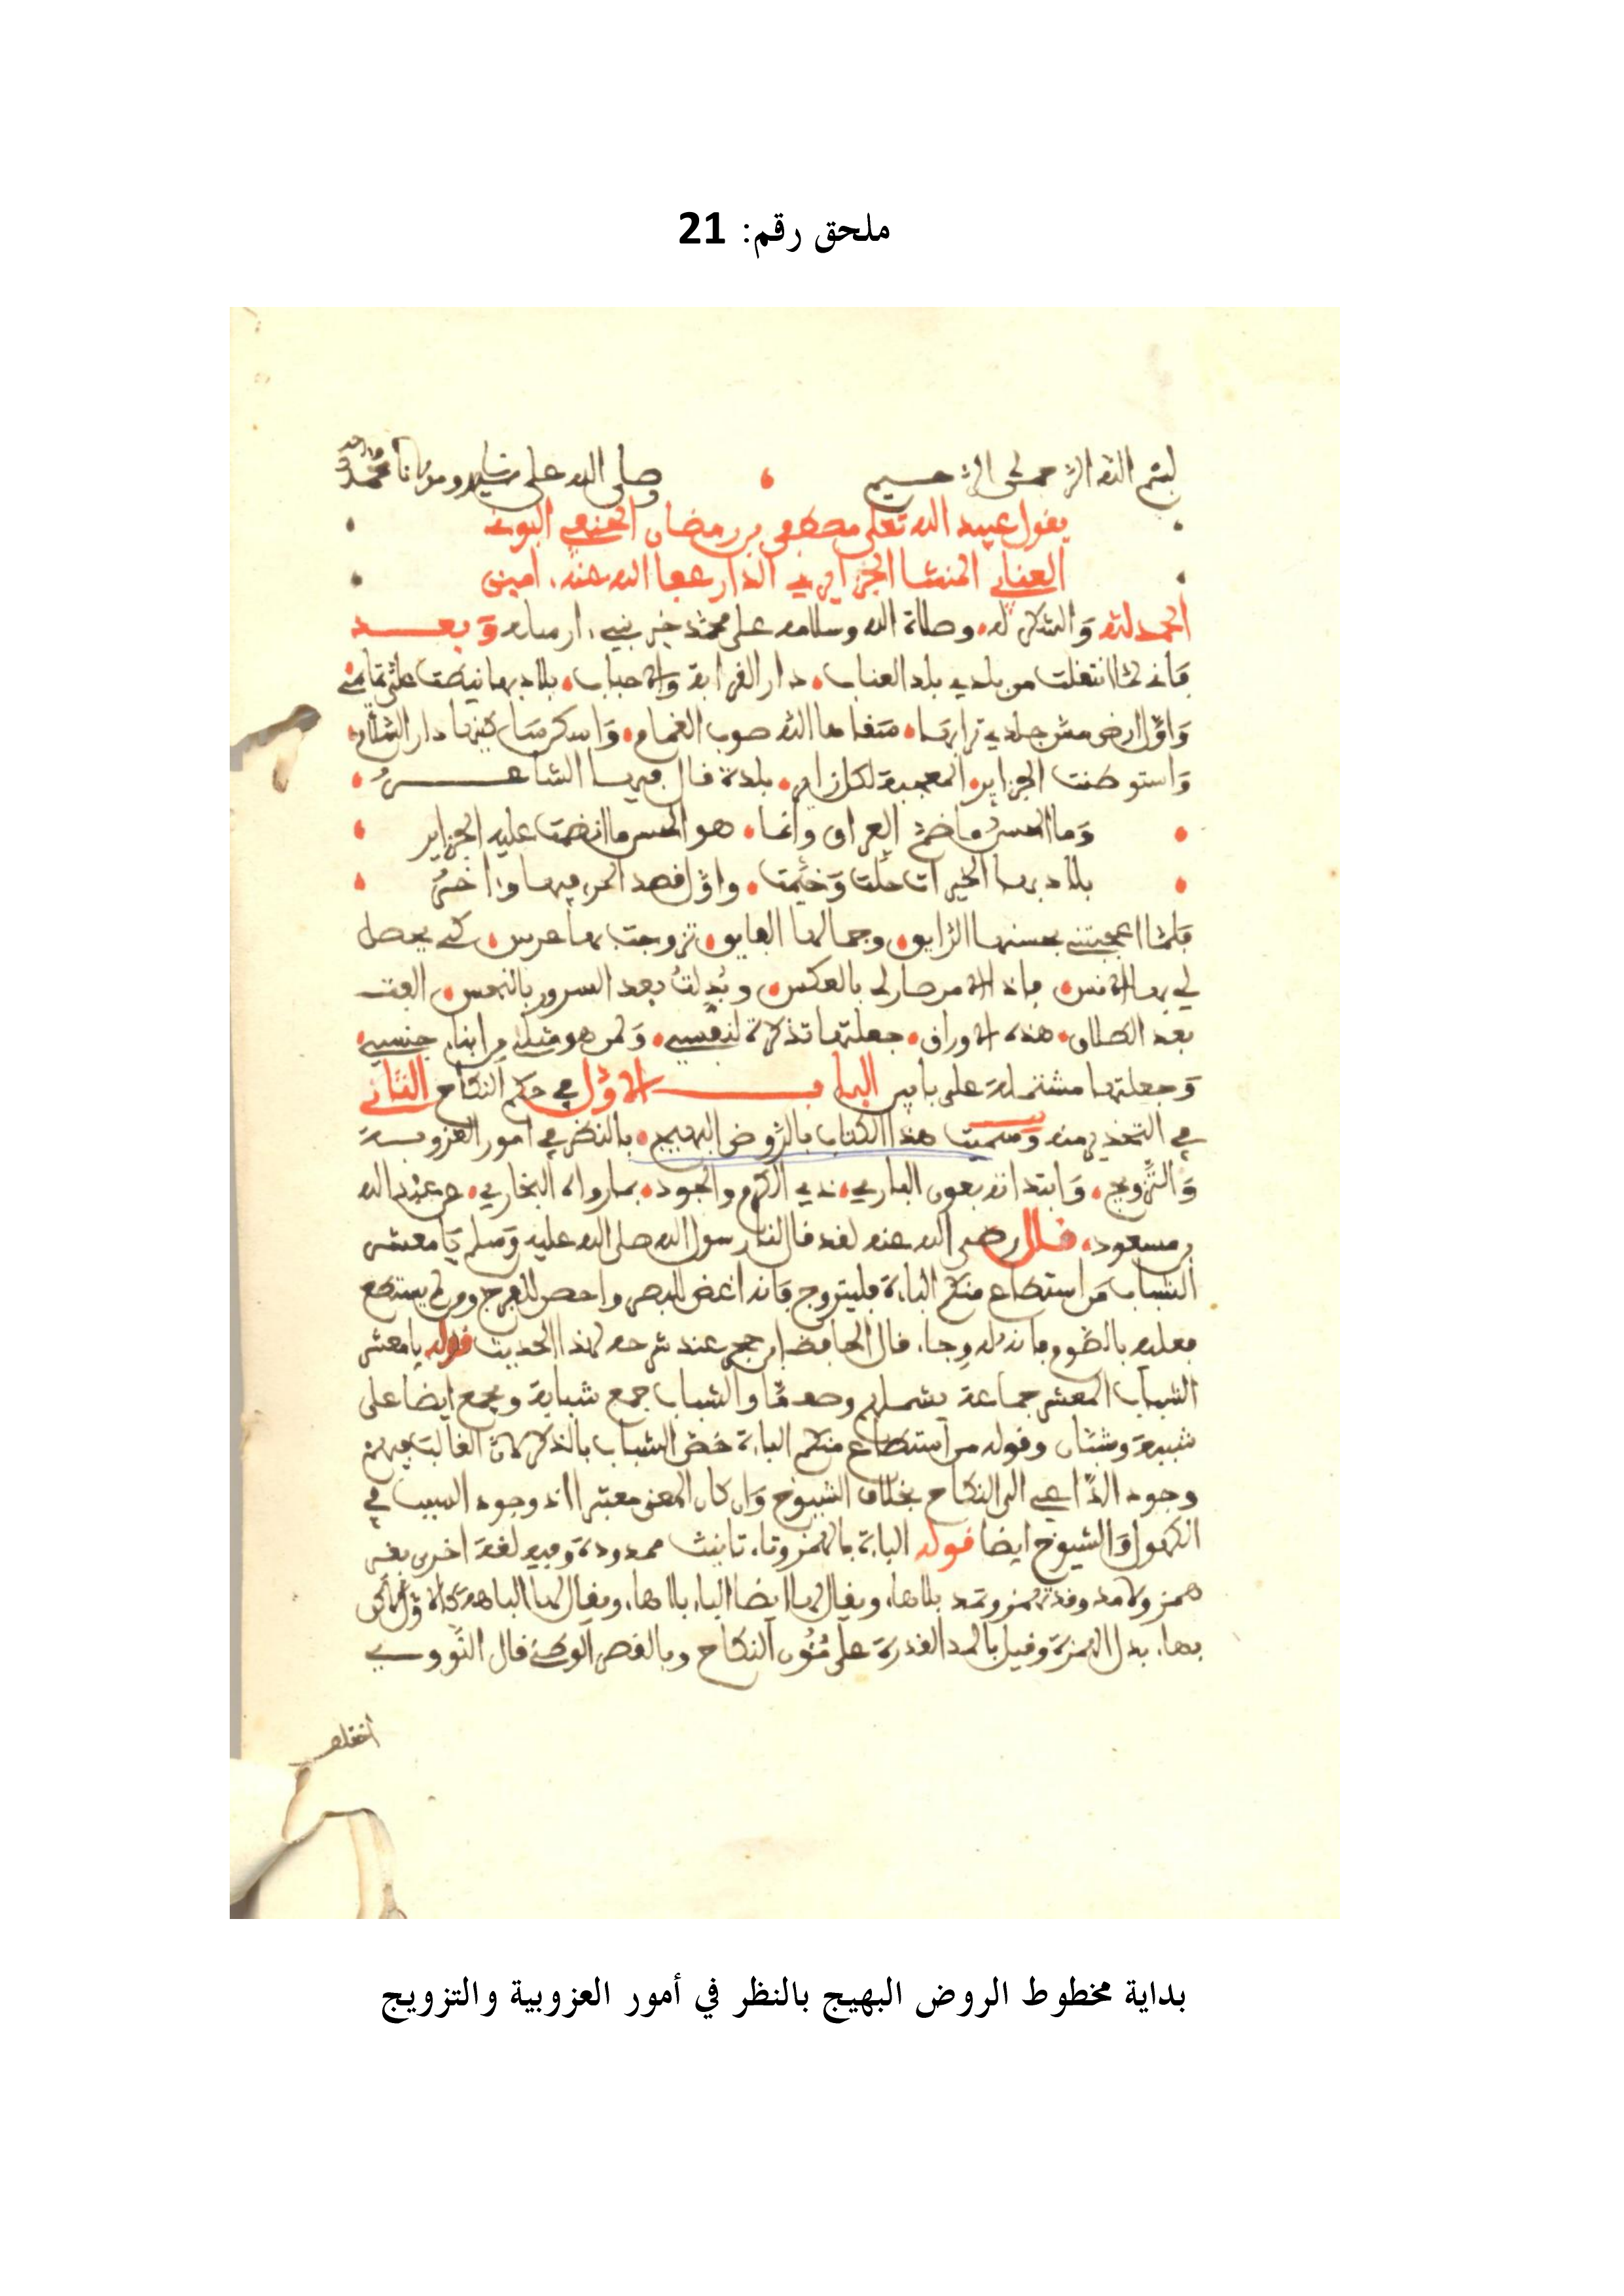 ملحق رقم: 21
بسم الله الرحمن الرحيم • وصلى الله على سيدنا ومولانا محمد
يقول عبيد الله تعلى مصطفى بن رمضان الحنفي البوني
العنابي المنشا الجزايري الدار عفا الله عنه، امين
الحمد لله وَالشكر له، وصلاة الله وسلامه على محمد خير نبي ارسله وَبعد
فَاني لمّا انتقلت من بلدي بلد العناب، دار القرابة وَالاحباب، بلاد بها نيطت عليّ تمايمي
وَاوّل ارض مسّ جلدي ترابها، سقاها الله صوب الغمام، وَاسكن ساكنها دار السّلام،
وَاستوطنت الجزاير، المعجبة لكل زاير، بلدة قال فيها الشاعر،
وَما الحسن ما ضمّ العراق وانما، هو الحسن ما انضمت عليه الجزاير
بلاد بها الخيرات حلّت وَخيّمت، واوّل قصد الحر فيها واخرُ
فلمّا اعجبتني بحسنها الرّايق، وجمالها الفايق، تزوجت بها عرس، كي يحصل
لي بها الانس، فاذا الامر صار لي بالعكس، وبُدلتُ بعد السرور بالنحس، الفت
بعد الطلاق، هذه الاوراق، جعلتها تذكرة لنفسي، وَلمن هو مثلي من ابناء جنسي،
وَجعلتها مشتملة على بابين الباب الاوّل في حكم النكاح الثّاني
في التحذير منه وَسميت هذا الكتاب بالرّوض البهيج، بالنظر في امور العزوبة
وَالتّزويج، وَابتداته بعون الباري، ذي الكرم والجود، بما رواه البخاري، عن عبد الله
بن مسعود، قال رضي الله عنه لقد قال لنا رسول الله صلى الله عليه وَسلم يَا معشر
الشباب مَن استطاع منكم الباءة فليتزوج فَانه اغض للبصر واحصن للفرج ومن لم يستطع
فعليه بالصّوم فانه له وجاء، قال الحافظ ابن حجر عند شرحه لهذا الحديث قوله يا معشر
الشباب المعشر جماعة يشملهم وصف مّا والشباب جمع شباب ويجمع ايضا على
شببة وشبّان وقوله من استطاع منكم الباءة خصّ الشباب بالذكر لانّ الغالب فيهم
وجود الدّاعي الى النكاح بخلاف الشيوخ وَان كان المعنى معتبرا اذا وجود السبب في
الكهول وَالشيوخ ايضا قوله الباءة بالهمز وتاء تانيث ممدودة وفيه لغة اخرى بغير
همز ولا مد وقد يهمز ويمد بلا هاء، ويقال لها ايضا الباء بالهاء، ويقال لها الباهة كالاوّل لاكن
بهاء بدل الهمزة وقيل بالمد القدرة على مُؤَن النكاح وبالقصر الوطئ قال النّووي
اختلف
بداية مخطوط الروض البهيج بالنظر في أمور العزوبية والتزويج